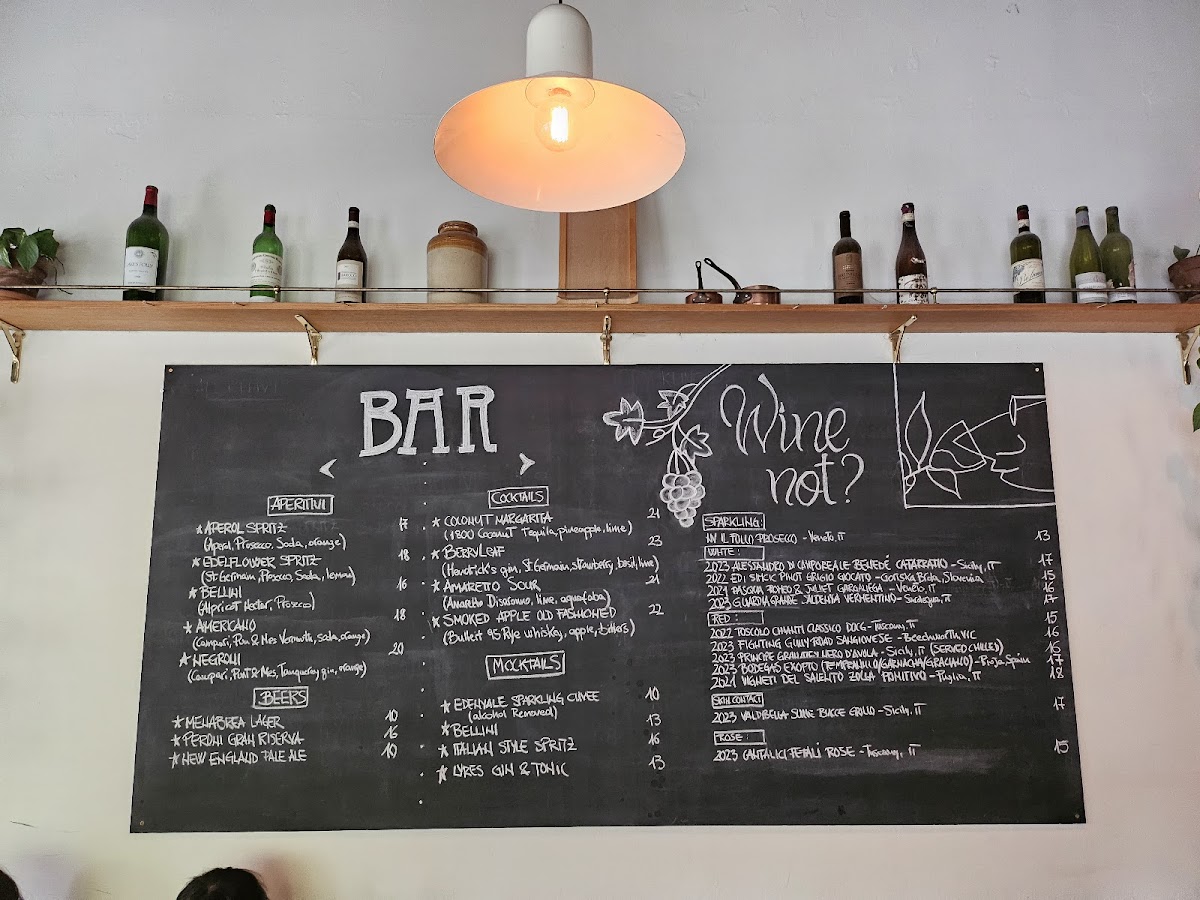 BAR
APERITIVI
★ APEROL SPRITZ 17
(Aperol, Prosecco, Soda, orange)
★ EDELFLOWER SPRITZ 18
(St Germain, Prosecco, Soda, lemon)
★ BELLINI 16
(Apricot Nectar, Prosecco)
★ AMERICANO 18
(Campari, Punt & Mes Vermouth, Soda, orange)
★ NEGRONI 20
(Campari, Punt & Mes, Tanqueray gin, orange)
BEERS
★ MENABREA LAGER 10
★ PERONI GRAN RISERVA 16
★ NEW ENGLAND PALE ALE 19
COCKTAILS
★ COCONUT MARGARITA 21
(1800 Coconut Tequila, pineapple, lime)
★ BERRY LEAF 23
(Hendrick's gin, St Germain, strawberry, basil, lime)
★ AMARETTO SOUR 21
(Amaretto Disaronno, lime, aquafaba)
★ SMOKED APPLE OLD FASHIONED 22
(Bulleit 95 Rye whiskey, apple, bitters)
MOCKTAILS
★ EDENVALE SPARKLING CUVEE 10
(alcohol Removed)
★ BELLINI 13
★ ITALIAN STYLE SPRITZ 16
★ LYRES GIN & TONIC 13
Wine
not?
SPARKLING:
NV IL FOLLO PROSECCO - Veneto, IT 13
WHITE:
2023 ALESSANDRO DI CAMPOREALE BENEDÉ CATARRATTO - Sicily, IT 17
2022 EDI SIMCIC PINOT GRIGIO GIOCATO - Goriska Brda, Slovenia 15
2021 PASQUA ROMEO & JULIET GARGANEGA - Veneto, IT 16
2023 GUARDIA GRANDE VERMENTINO - Sardegna, IT 17
RED:
2022 TOSCOLO CHIANTI CLASSICO DOCG - Tuscany, IT 15
2023 FIGHTING GULLY ROAD SANGIOVESE - Beechworth, VIC 16
2023 PRINCIPE GRANATEY NERO D'AVOLA - Sicily, IT (SERVED CHILLED) 16
2023 BODEGAS EXOPTO (TEMPRANILLO/GARNACHA/GRACIANO) - Rioja, Spain 17
2021 VIGNETI DEL SALENTO ZOLLA PRIMITIVO - Puglia, IT 18
SKIN CONTACT
2023 VALDIBELLA SULLE BUCCE GRILLO - Sicily, IT 17
ROSE:
2023 CANTALICI PETALI ROSE - Tuscany, IT 15